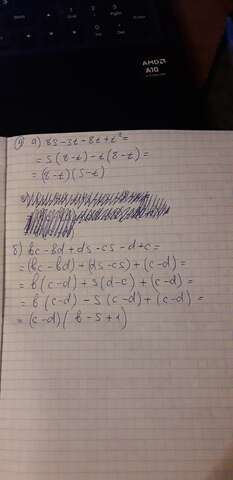 AMDA
A10
① а) 8s - st - 8t + t² =
= s(8-t) - t(8-t) =
= (8-t)(s-t)
б) bc - bd + ds - cs - d + c =
= (bc - bd) + (ds - cs) + (c-d) =
= b(c-d) + s(d-c) + (c-d) =
= b(c-d) - s(c-d) + (c-d) =
= (c-d)(b - s + 1)